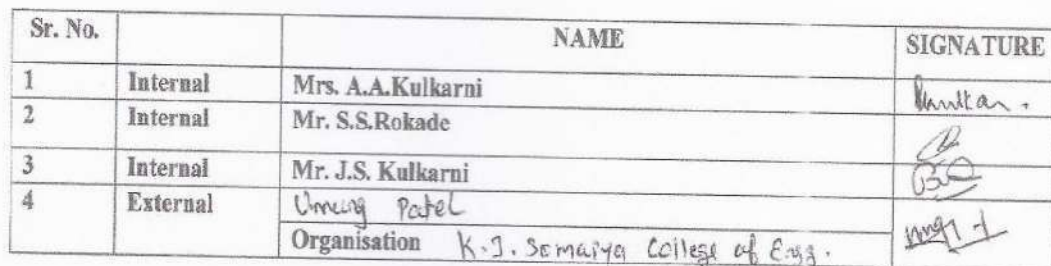 Sr. No. NAME SIGNATURE
1 Internal Mrs. A.A.Kulkarni
2 Internal Mr. S.S.Rokade
3 Internal Mr. J.S. Kulkarni
4 External Umang Patel
Organisation K.J. Somaiya College of Engg.